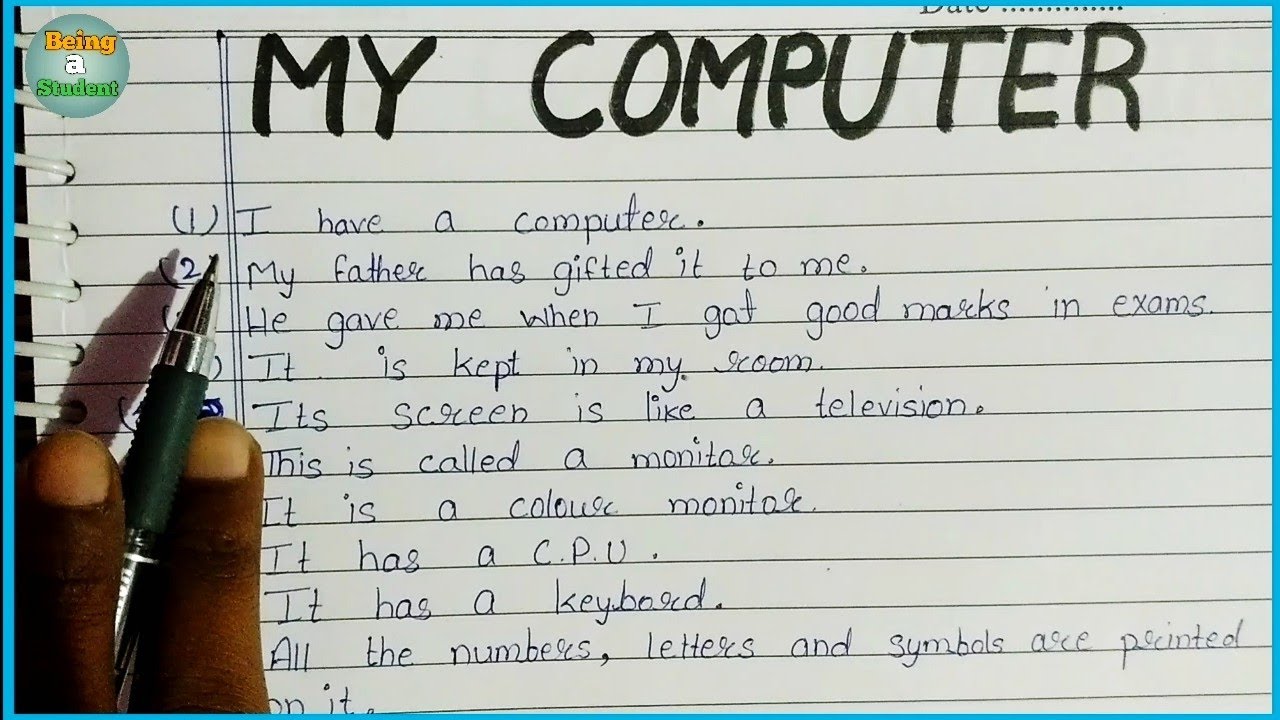 Being
a
Student
Date ..............
MY COMPUTER
(1) I have a computer.
(2) My father has gifted it to me.
He gave me when I got good marks in exams.
It is kept in my room.
Its screen is like a television.
This is called a monitor.
It is a colour monitor.
It has a C.P.U.
It has a keyboard.
All the numbers, letters and symbols are printed
on it.